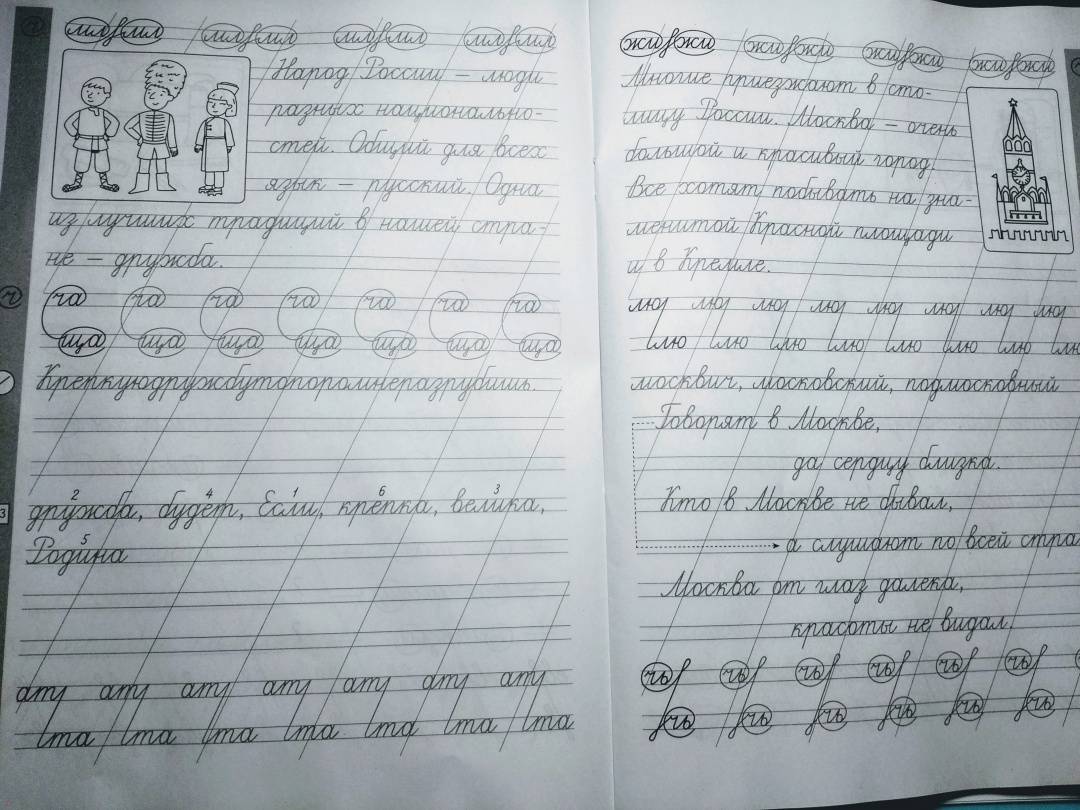 Народ России – люди
разных национально-
стей. Общий для всех
язык – русский. Одна
из лучших традиций в нашей стра-
не – дружба.
ча ча ча ча ча ча ча
ща ща ща ща ща ща ща
Крепкуюдружбутопоромнеразрубишь.
2 4 1 6 3
дружба, будет, Если, крепка, велика,
5
Родина
та та та та та та та
жи жи жи жи жи жи жи жи
Многие приезжают в сто-
лицу России. Москва – очень
большой и красивый город.
Все хотят побывать на зна-
менитой Красной площади
и в Кремле.
лю лю лю лю лю лю лю
москвич, московский, подмосковный
Говорят в Москве,
да сердцу близка.
Кто в Москве не бывал,
а слушают по всей стра
Москва от глаз далека,
красоты не видал.
чь чь чь чь чь чь
чь чь чь чь чь чь